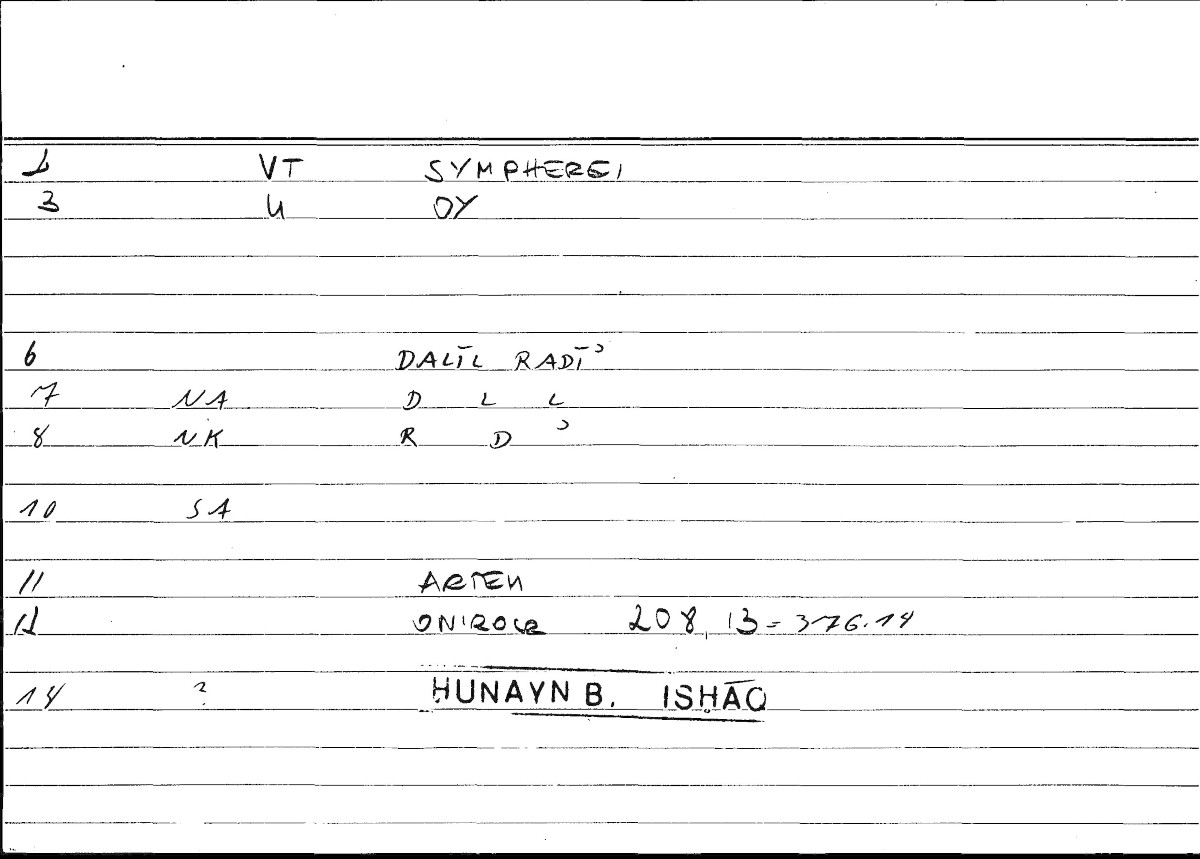 1 VT SYMPHEREI
3 U OY
6 DALĪL RADĪʾ
7 NA D L L
8 NK R D ʾ
10 SA
11 ARTEM
12 ONIROCR 208,13=376.14
14 ? ḤUNAYN B. ISḤĀQ